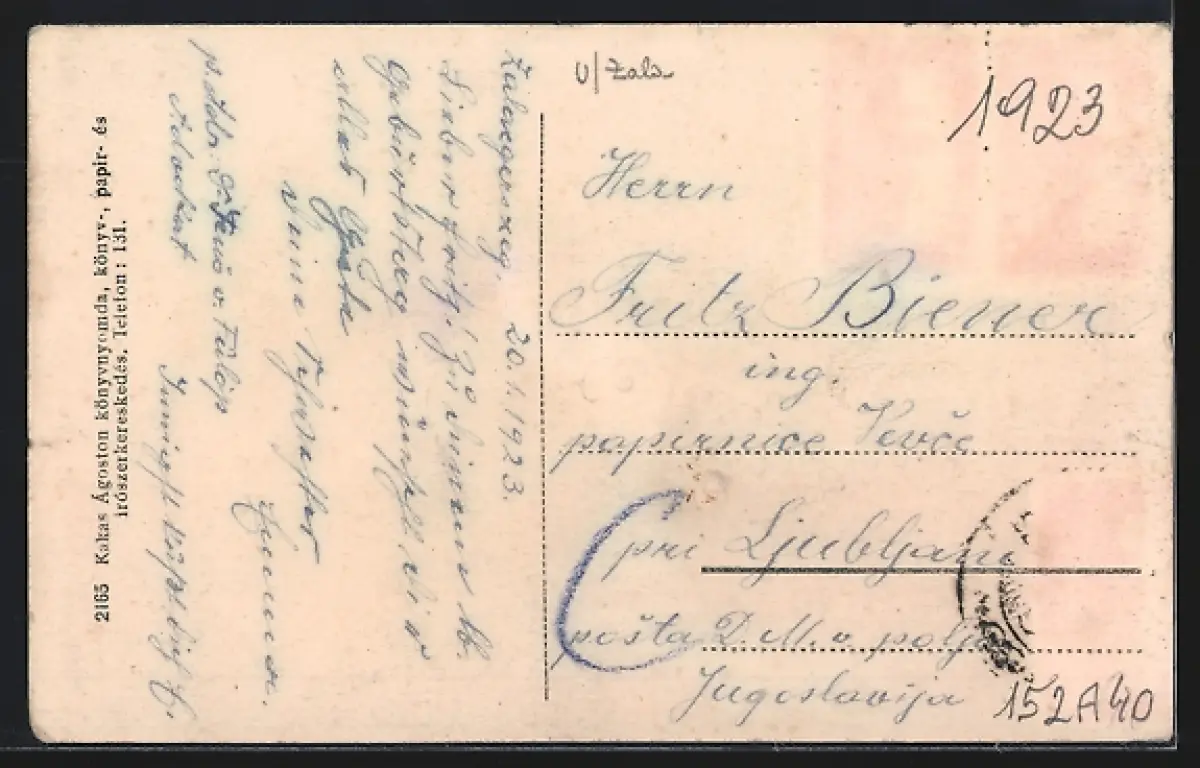 U/Zala
1923
Herrn
Fritz Biener
ing.
papirnice Vevče
pri Ljubljani
pošta D. M. v polju
Jugoslavija
152A40
Zalaegerszeg. 20.1.1923.
Lieber Fritz! Zu Deinem
Geburtstag wünscht Dir
alles Gute
Deine Schwester
p. Adr. Dr. Jenö v. Fülöp
Advokat
Innigst küsst Dich
2165 Kakas Ágoston könyvnyomda, könyv-, papir- és
irószerkereskedés. Telefon: 131.